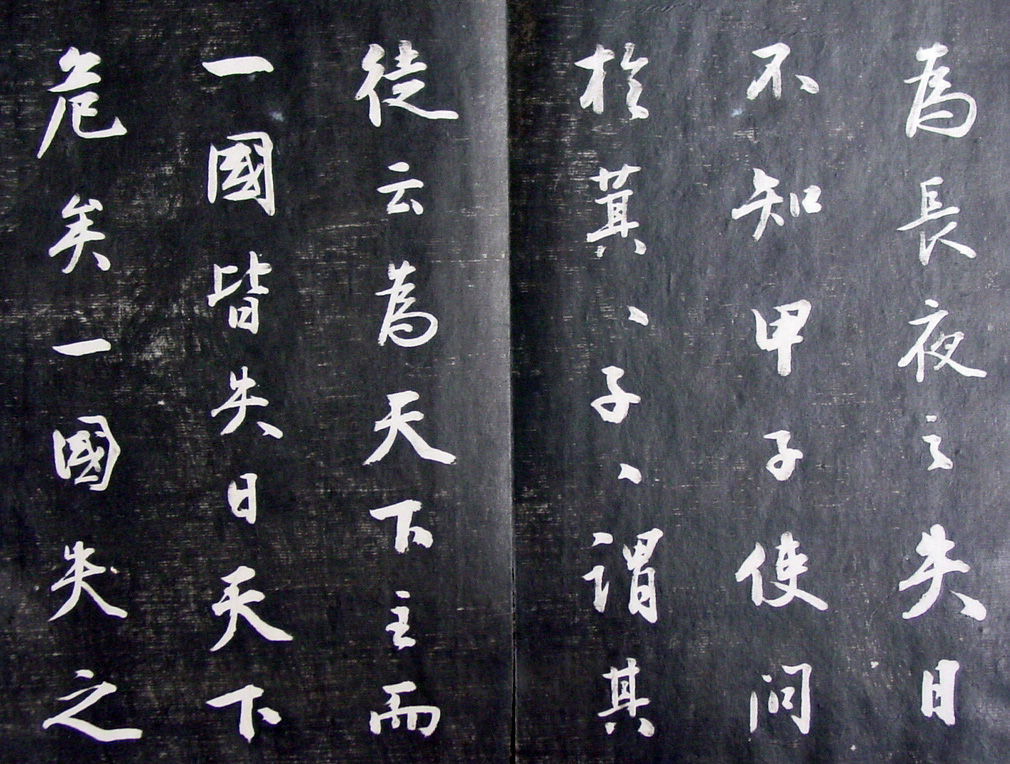 為長夜之失日
不知甲子使問
於萁、子、謂其
徒云為天下主而
一國皆失日天下
危矣一國失之